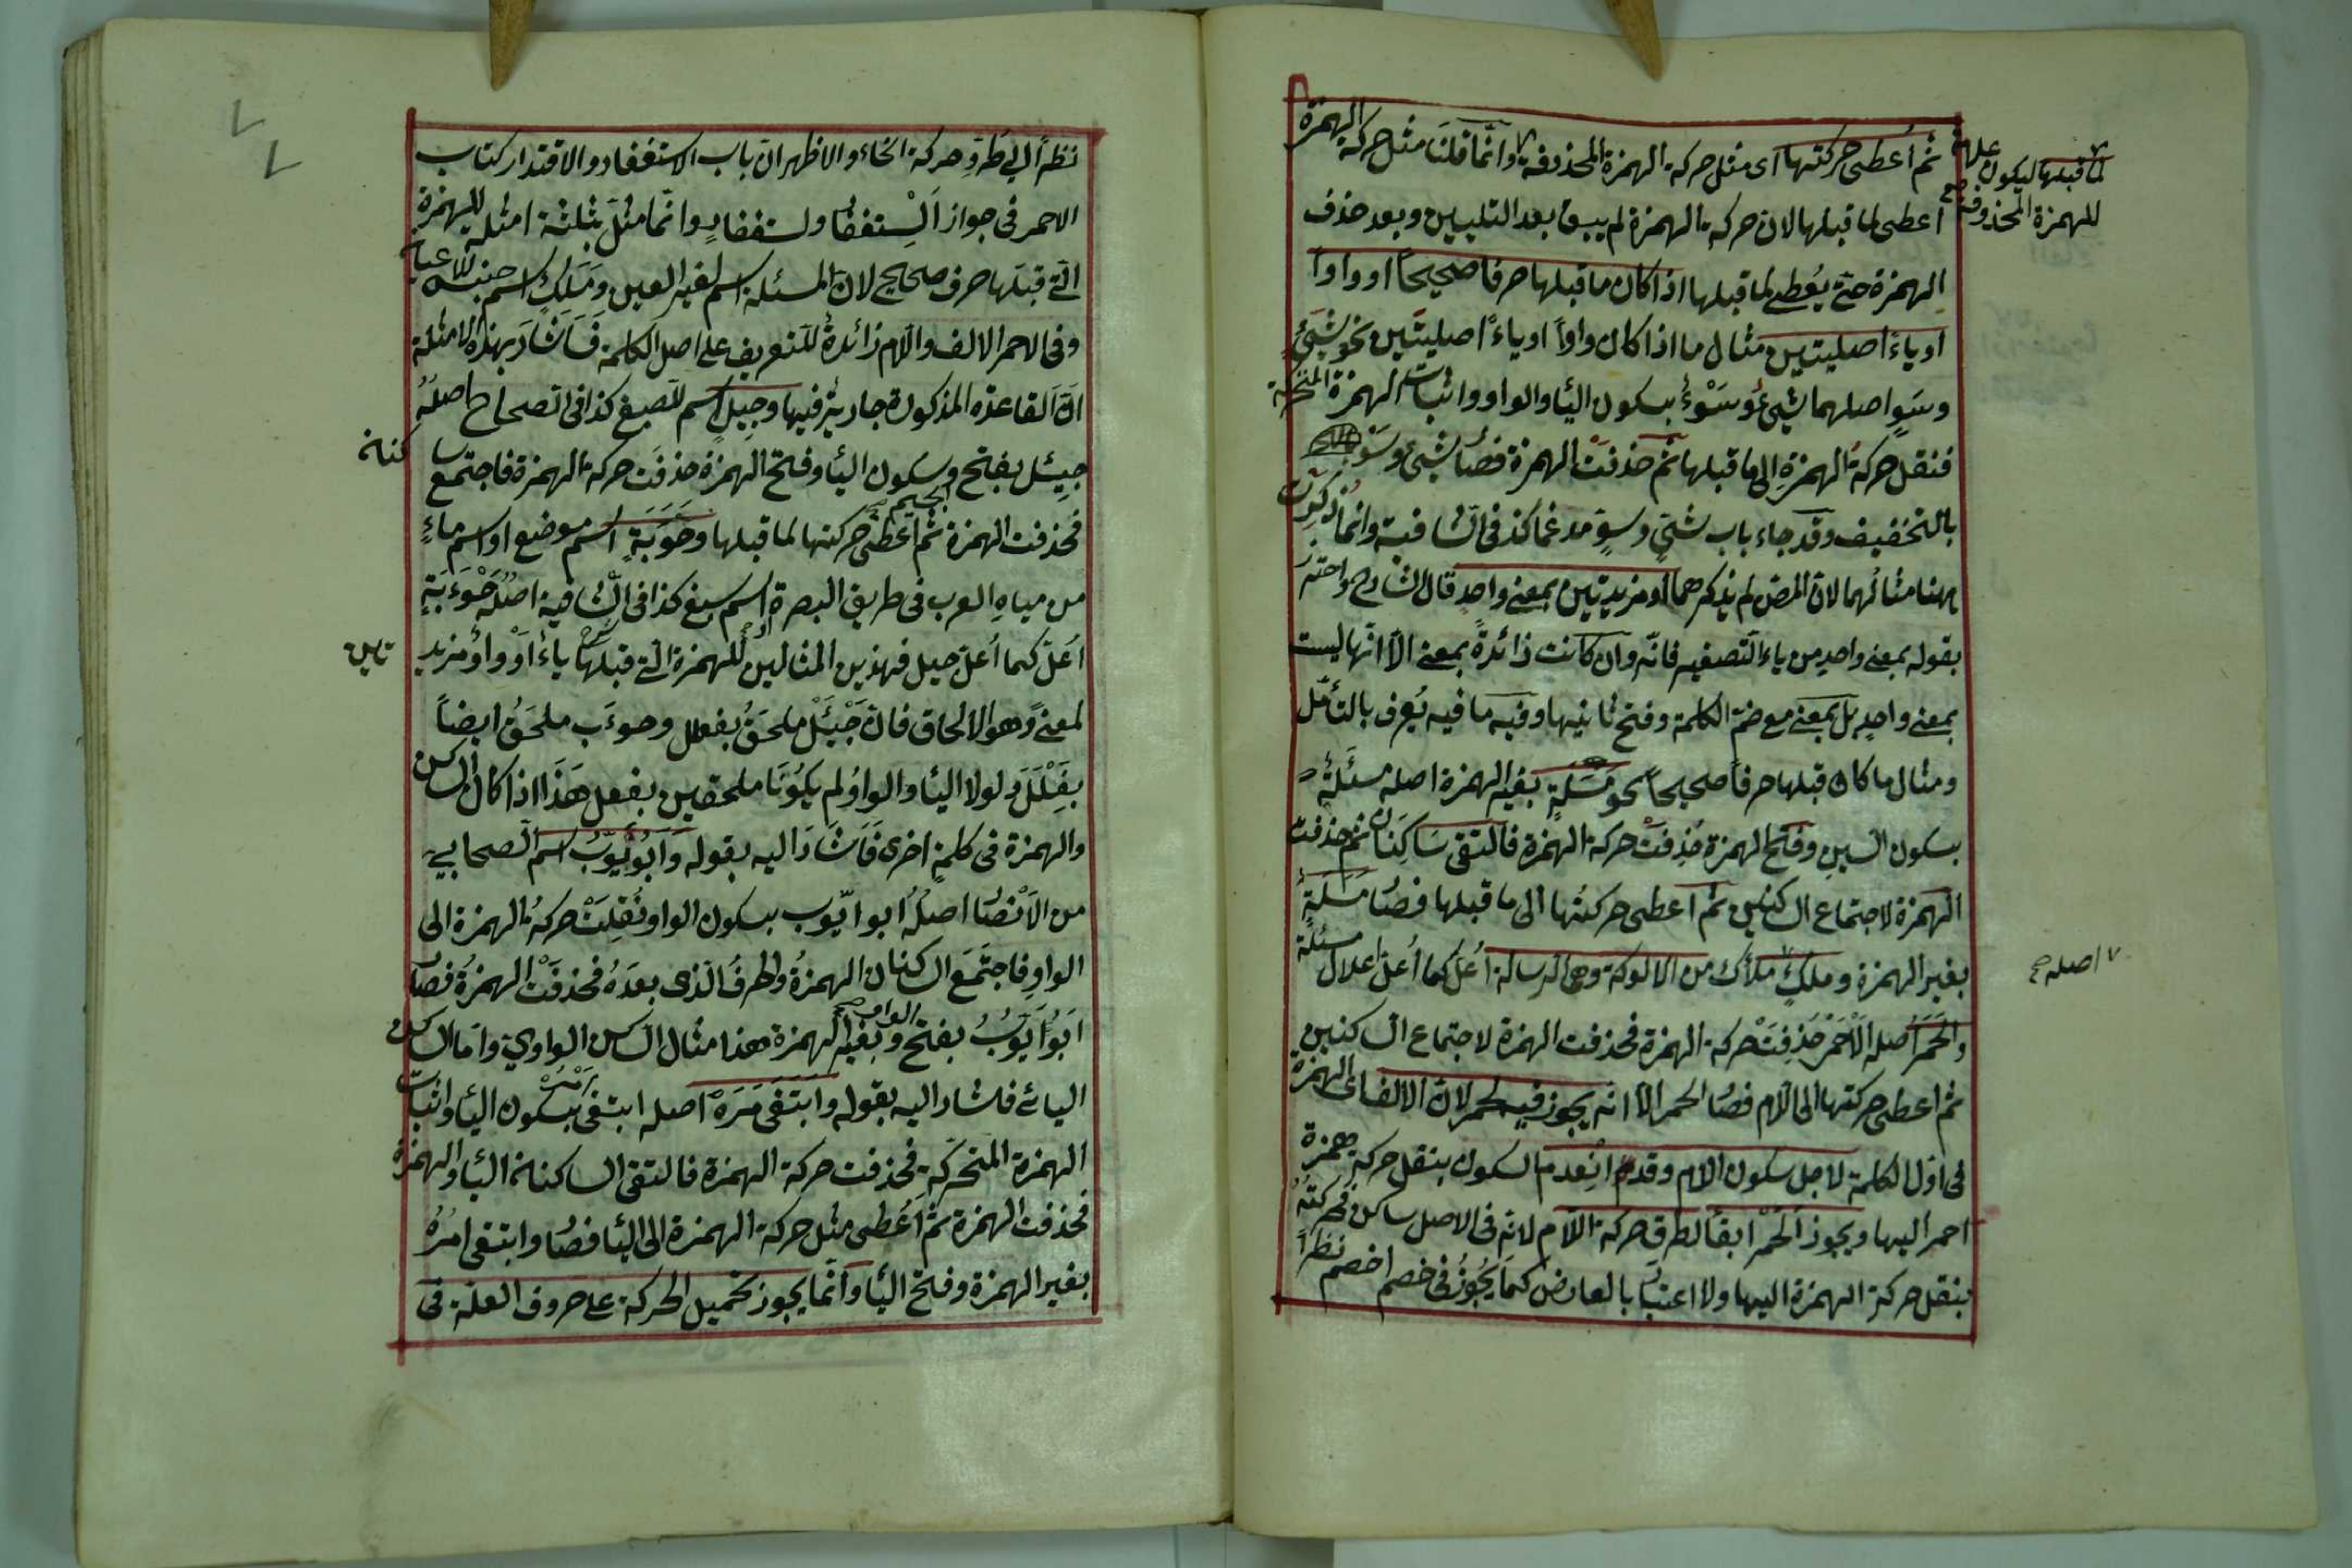 ثم أعطى حركتها اى مثل حركة الهمزة المحذوفة وانّما قلنا مثل حركة الهمزة
لما قبلها ليكون علامة
للهمزة المحذوفة صح
اعطى لما قبلها لان حركة الهمزة لم يبق بعد التليين وبعد حذف
الهمزة حتّى يُعطى لما قبلها اذا كان ما قبلها حرفا صحيحًا او واوا
او ياءً اصليتين مثال ما اذا كان واواً او ياءً اصليتين نحو شَىٍ
وسَوٍ اصلهما شىءٌ وسَوْءٌ بسكون اليا والواو واثبات الهمزة المتحركة
فنقل حركةُ الهمزةِ الى ما قبلها ثم حذفتْ الهمزة فصار شىٌ وسَوٌ
بالتخفيف وقد جاء باب شىّ وسوّ مدغما كذ فى الشافية وانما ذكرت
ههنا مثالهما لان المص لم يذكرهما او مزيدتين بمعنى واحد قال الشارح واحترز
بقوله بمعنى واحد من ياء التصغير فانّه وان كانت زائدةً بمعنى الّا انّها ليست
بمعنى واحدٍ بل بمعنى مع ضم الكلمة وفتح ثانيها وفيه ما فيه يُعرف بالتأمّل
ومثال ما كان قبلها حرفاً صحيحاً نحو مَسَلَةٍ بغير الهمزة اصله مسئلةٌ
بسكون السين وفتح الهمزة حُذِفتْ حركة الهمزة فالتقى سَاكِنَان ثم حذفت
الهمزة لاجتماع الساكنين ثم اعطى حركتُها الى ما قبلها فصار مَسَلَةٌ
بغير الهمزة وملكٍ ملأك من الالوكة وهى الرسالة أُعلّ كما أُعلّ اعلال مسئلة
اصله صح
والحَمَر اصله الاَحْمَر حُذِفَتْ حركة الهمزة فحذفت الهمزة لاجتماع الساكنين
ثم اعطى حركتها الى اللام فصار الحمر الّا انّه يجوز فيه لحمر لان الالف اى الهمزة
فى اوّل الكلمة لاجل سكون اللام وقد انْعدم السكون بنقل حركة همزة
احمر اليها ويجوز الَحْمر ابقاً لطرق حركة اللّام لانّه فى الاصل ساكن فحركتُه
بنقل حركة الهمزة اليها ولا اعتبار بالعارض كما يجُوزُ فى خصم اخصم نظراً
نظراً الى طروِ حركة الخاء والاظهر انّ باب الاستغفار والاقتدار كتاب
الاحمر فى جواز اَلِسْتغفار ولستغفار وانّما مثّلَ بثلثة امثلة للهمزة
الّتى قبلَها حرف صحيح لان المسئلة اسم لغير العين ومَلَكٍ اسم جنس للاعيان
وفى الاحمر الالف واللام زائدةٌ للتعريف على اصل الكلمة فَاَشَارَ بهذه الامثلة
انّ القاعدة المذكورة جارية فيها وجِيَلٍ اسم للضبع كذا فى الصحاح اصلهُ
جيئل بفتح الجيم وسكون اليا وفتح الهمزة حذفَت حركة الهمزة فاجتمع سا
كنان
فحذفت الهمزة ثم اعطى حركتها لما قبلها وحَوَبَةٍ اسم موضع او اسم ماءٍ
من مياهِ العرب فى طريق البصرة اسم سبع كذا فى الشافية اصلهُ حَوْءَبَةٍ
اُعلّ كما اُعلّ جيل فهذين المثالين للهمزة الّتى قبلها ياءٌ اَوْ واوٌ مزيد
تاين
لمعنىً وهو الالحاق فانّ جَيْئَلْ ملحَقٌ بفعلل وحوءَب ملحَقٌ ايضاً
بِفَعْلَلَ ولولا اليا والواوُ لم يكُونَا ملحقين بفعلل هَذَا اذا كان الساكن
والهمزة فى كلمةٍ اخرى فَاَشَارَ اليه بقوله وَاَبُوَيّوبُ اسم الصحابي
من الاَنْصار اصلُهُ ابو ايّوب بسكون الواو نُقِلتْ حركةُ الهمزة الى
الواوِ فاجتَمَعَ الساكنان الهمزةُ والحرفُ الّذى بعدَهُ فحذفَتْ الهمزةُ فصار
اَبُوَايّوُبُ بفتح الواو صح وبغير الهمزة هذا مثال الساكن الواوي وامّا الساكن
اليائى فاشار اليه بقوله وابتَغَىَ مْرَهُ اصله ابتغى اَمْرَهُ بسكون اليا واثبات
الهمزة المتحركة فحذفت حركة الهمزة فالتقى الساكنان اليا والهمزة
فحذفت الهمزة ثم اَعُطى مثل حركة الهمزة الى اليا فصار وابتغى امرُهُ
بغير الهمزة وفتح اليا وانّما يجوز تحميل الحركة على حروف العلّة فى